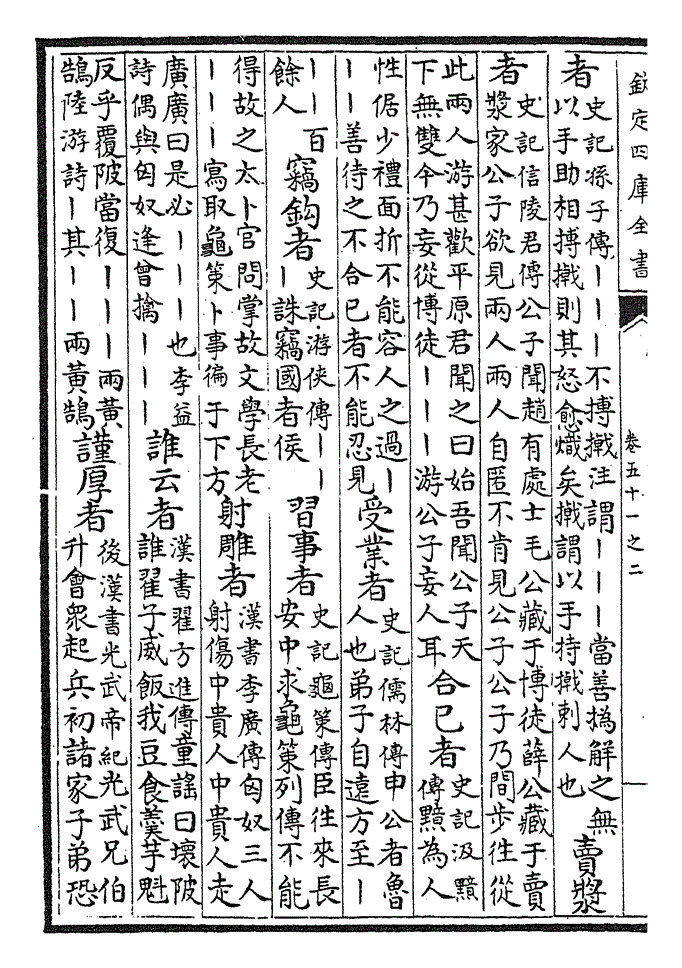 欽定四庫全書
卷五十一之二
者
史記孫子傳丨丨丨不搏撠注謂丨丨丨當善撝解之無
以手助相搏撠則其怒愈熾矣撠謂以手持撠刺人也
賣漿
者
史記信陵君傳公子聞趙有處士毛公藏于博徒薛公藏于賣
漿家公子欲見兩人兩人自匿不肯見公子公子乃間步往從
此兩人游甚歡平原君聞之曰始吾聞公子天
下無雙今乃妄從博徒丨丨丨游公子妄人耳
合已者
史記汲黯
傳黯為人
性倨少禮面折不能容人之過丨
丨善待之不合已者不能忍見
受業者
史記儒林傳申公者魯
人也弟子自遠方至丨
丨丨百
餘人
竊鈎者
史記游俠傳丨丨
丨誅竊國者侯
習事者
史記龜策傳臣往來長
安中求龜策列傳不能
得故之太卜官問掌故文學長老
丨丨丨寫取龜策卜事徧于下方
射雕者
漢書李廣傳匈奴三人
射傷中貴人中貴人走
廣廣曰是必丨丨丨也李益
詩偶與匈奴逢曾擒丨丨丨
誰云者
漢書翟方進傳童謠曰壞陂
誰翟子威飯我豆食羹芋魁
反乎覆陂當復丨丨丨兩黃
鵠陸游詩丨其丨丨兩黃鵠
謹厚者
後漢書光武帝紀光武兄伯
升會衆起兵初諸家子弟恐